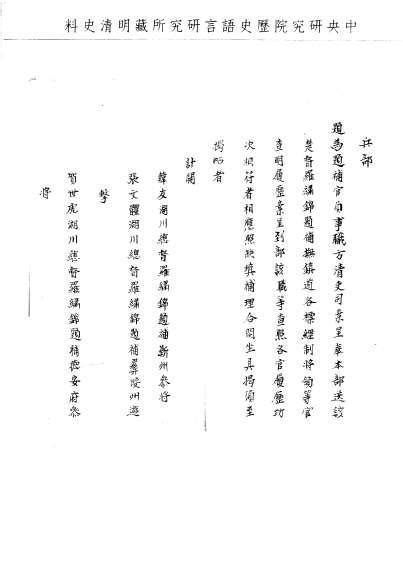 中央研究院歷史語言研究所藏明清史料
兵部
題為題補官員事職方清吏司案呈奉本部送該
楚督羅繡錦題補撫鎮道各標經制將領等官
查明履歷案呈到部該職等查照各官履歷功
次相符者相應照缺填補理合開坐具揭須至
揭帖者
計開
韓友湖川總督羅繡錦題補蘄州參將
張文耀湖川總督羅繡錦題補彝陵州遊
擊
賀世虎湖川總督羅繡錦題補德安府參
將